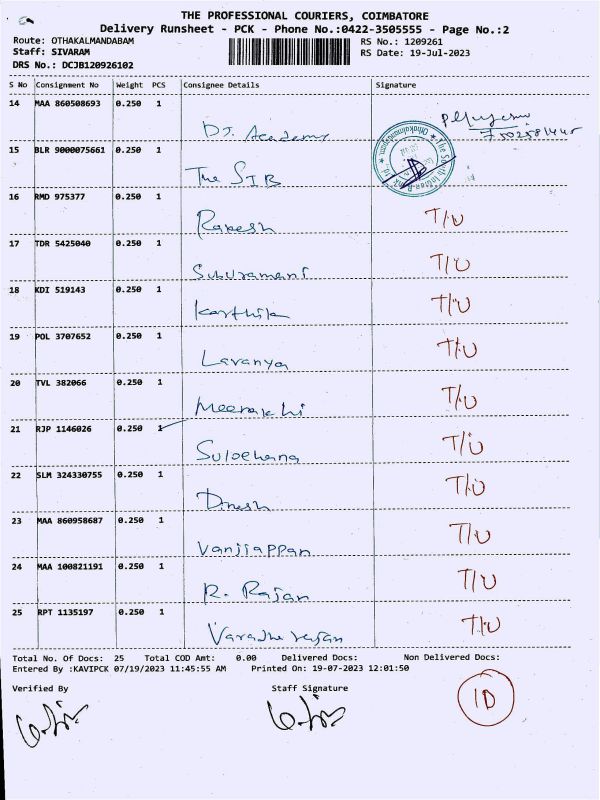 THE PROFESSIONAL COURIERS, COIMBATORE
Delivery Runsheet - PCK - Phone No.:0422-3505555 - Page No.:2
Route: OTHAKALMANDABAM
RS No.: 1209261
Staff: SIVARAM
RS Date: 19-Jul-2023
DRS No.: DCJB120926102
S No Consignment No Weight PCS Consignee Details Signature
14 MAA 860508693 0.250 1 DJ. Academy
15 BLR 9000075661 0.250 1 The SIB
The South Indian Bank Ltd. Othakalmandapam
16 RMD 975377 0.250 1 Rakesh T/U
17 TDR 5425040 0.250 1 T/U
18 KDI 519143 0.250 1 Karthik T/U
19 POL 3707652 0.250 1 Lavanya T/U
20 TVL 382066 0.250 1 Meenakshi T/U
21 RJP 1146026 0.250 1 Sulochana T/U
22 SLM 324330755 0.250 1 Dinesh T/U
23 MAA 860958687 0.250 1 Vanjiappan T/U
24 MAA 100821191 0.250 1 R. Rajan T/U
25 RPT 1135197 0.250 1 Varadharajan T/U
Total No. Of Docs: 25 Total COD Amt: 0.00 Delivered Docs: Non Delivered Docs:
Entered By :KAVIPCK 07/19/2023 11:45:55 AM Printed On: 19-07-2023 12:01:50
Verified By Staff Signature
10